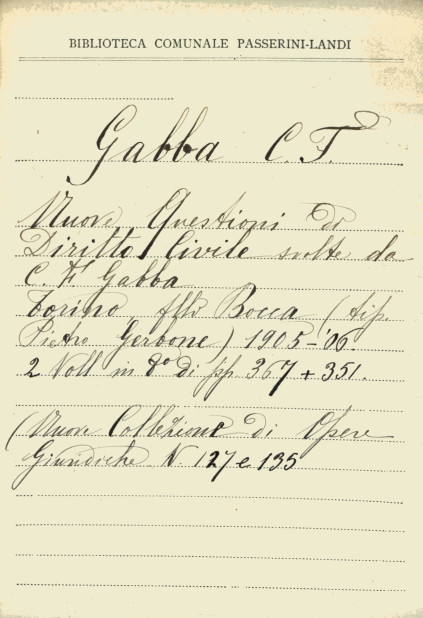 BIBLIOTECA COMUNALE PASSERINI-LANDI
Gabba C. F.
Nuove Questioni di
Diritto Civile svolte da
C. F. Gabba
Torino flli Bocca (tip.
Pietro Gerbone) 1905-'06.
2 Voll in 8º di pp 367 + 351.
(Nuova Collezione di Opere
Giuridiche N. 127 e 135